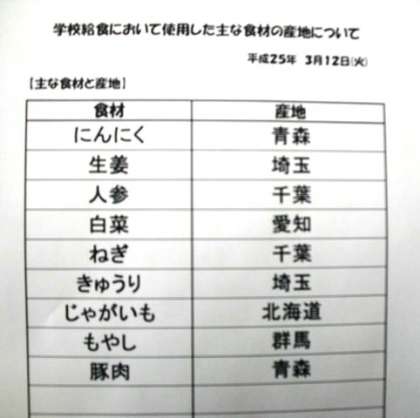 学校給食において使用した主な食材の産地について
平成25年 3月12日(火)
【主な食材と産地】
食材 産地
にんにく 青森
生姜 埼玉
人参 千葉
白菜 愛知
ねぎ 千葉
きゅうり 埼玉
じゃがいも 北海道
もやし 群馬
豚肉 青森